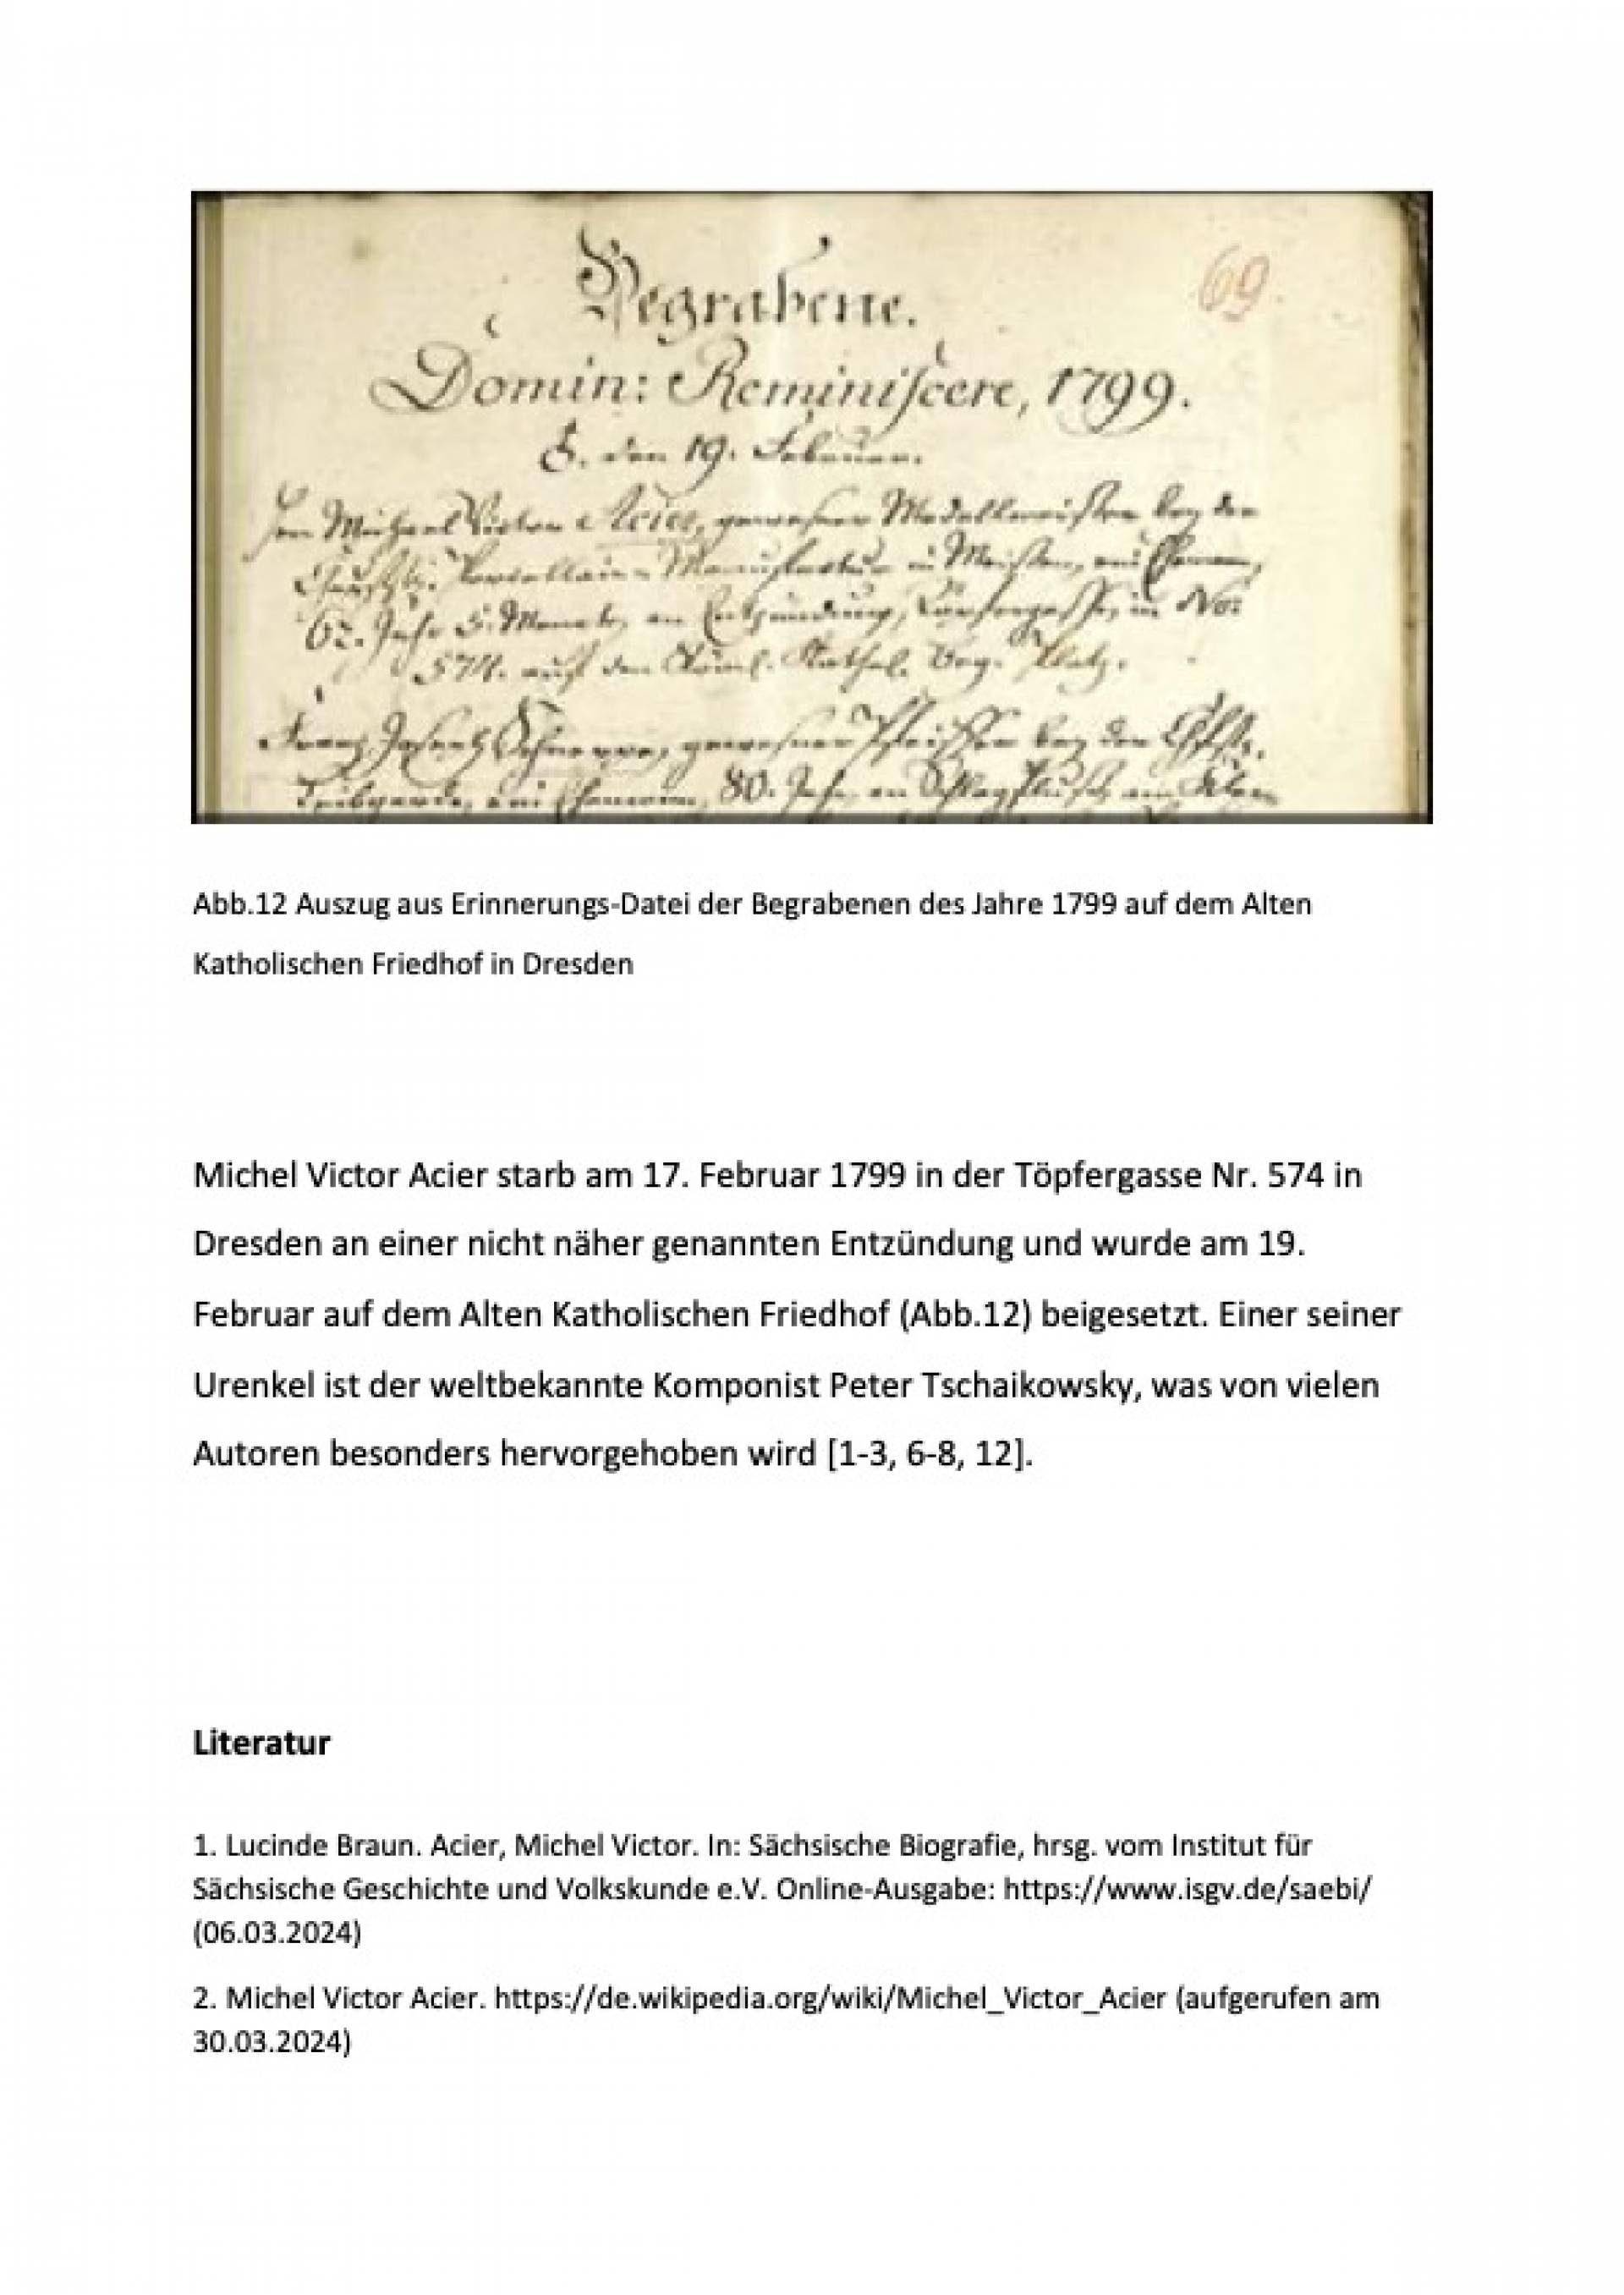 Begrabene.
69.
Domin: Reminiscere, 1799.
den 19. Februar.
Michael Victor Acier, gewesener Modellmeister bey der
Porcellain-Manufactur in Meißen, ein Ehemann,
62. Jahr 5. Monate, an Entzündung, in No:
574. auf den Röml. Kathol. Beg. Platz.
Franz Joseph gewesener bey der
Leibgarde, ein Ehemann, 80. Jahr, an Schlagfluß,
Abb.12 Auszug aus Erinnerungs-Datei der Begrabenen des Jahre 1799 auf dem Alten
Katholischen Friedhof in Dresden
Michel Victor Acier starb am 17. Februar 1799 in der Töpfergasse Nr. 574 in
Dresden an einer nicht näher genannten Entzündung und wurde am 19.
Februar auf dem Alten Katholischen Friedhof (Abb.12) beigesetzt. Einer seiner
Urenkel ist der weltbekannte Komponist Peter Tschaikowsky, was von vielen
Autoren besonders hervorgehoben wird [1-3, 6-8, 12].
Literatur
1. Lucinde Braun. Acier, Michel Victor. In: Sächsische Biografie, hrsg. vom Institut für
Sächsische Geschichte und Volkskunde e.V. Online-Ausgabe: https://www.isgv.de/saebi/
(06.03.2024)
2. Michel Victor Acier. https://de.wikipedia.org/wiki/Michel_Victor_Acier (aufgerufen am
30.03.2024)